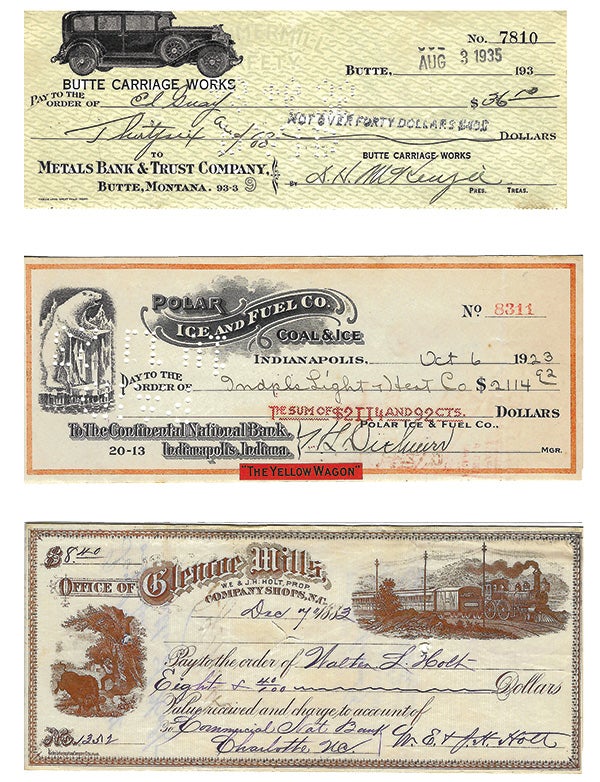 HAMMERMILL
SAFETY
No. 7810
AUG 3 1935
BUTTE, 193
BUTTE CARRIAGE WORKS
PAY TO THE
ORDER OF Ed Guay $36.00
NOT OVER FORTY DOLLARS $40$
Thirtysix and no/100 DOLLARS
TO
METALS BANK & TRUST COMPANY,
BUTTE, MONTANA. 93-3 9
BUTTE CARRIAGE WORKS
BY D. H. McKenzie
PRES. TREAS.
POLAR
ICE AND FUEL CO.
COAL & ICE
No 8311
INDIANAPOLIS, Oct 6 1923
PAY TO THE
ORDER OF Indpls Light & Heat Co $2114 92
THE SUM OF $2114 AND 92 CTS. DOLLARS
To The Continental National Bank,
20-13 Indianapolis, Indiana.
POLAR ICE & FUEL CO.,
MGR.
"THE YELLOW WAGON"
$8.40
OFFICE OF Glencoe Mills,
W.E. & J.H. HOLT, PROP.
COMPANY SHOPS, N.C.
Dec 7 1883
Pay to the order of Walter L. Holt
Eight & 40/100 Dollars
Value received and charge to account of
To Commercial Nat Bank
Charlotte, NC
No. 1352
W. E. & J. H. Holt